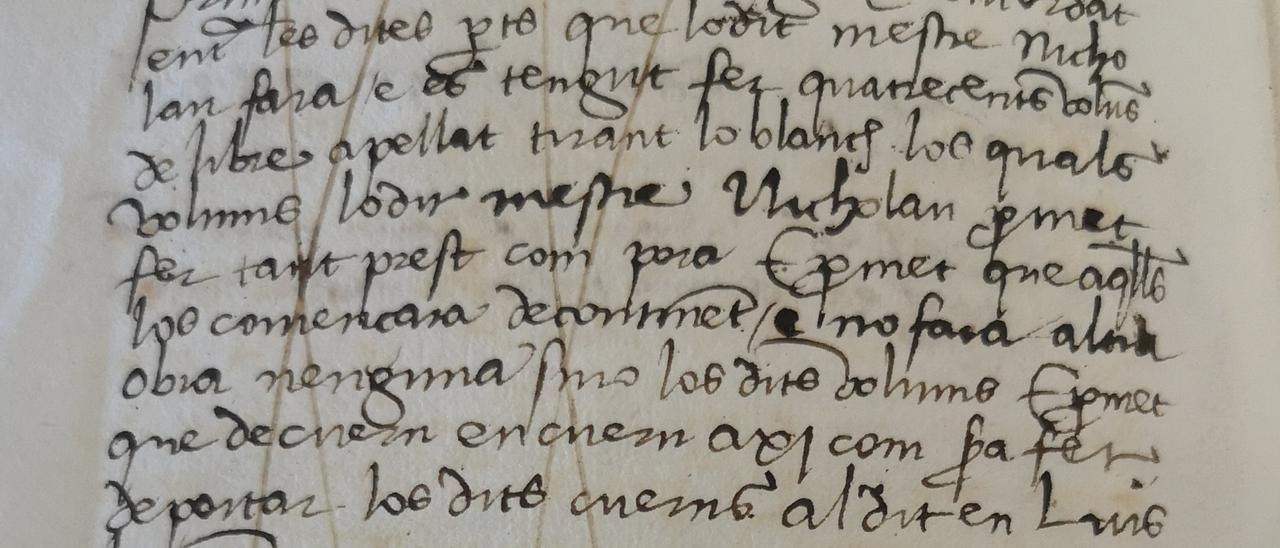 ent les dites pts que lodit mestre Nicho
lau fara / e es tengut fer quatrecents volums
de libre apellat tirant lo blanch los quals
volums lodit mestre Nicholau pmet
fer tant prest com pora E pmet que aqlls
los comencara decontinent / e no fara altra
obra nenguna sino los dits volums E pmet
que decuern encuern axi com sa fer
deportar los dits cuerns al dit en Luis